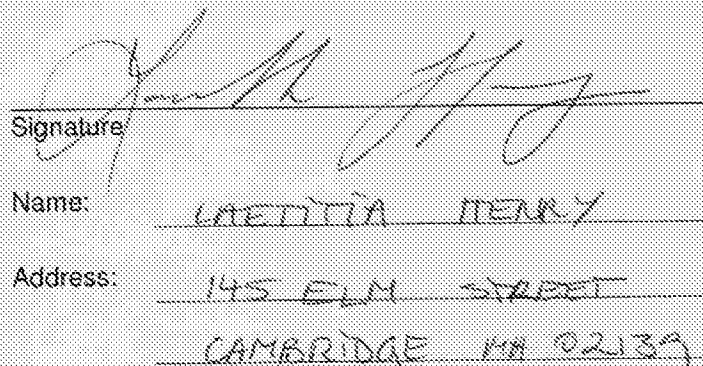 Signature
Name: LAETITIA HENRY
Address: 145 ELM STREET
CAMBRIDGE MA 02139